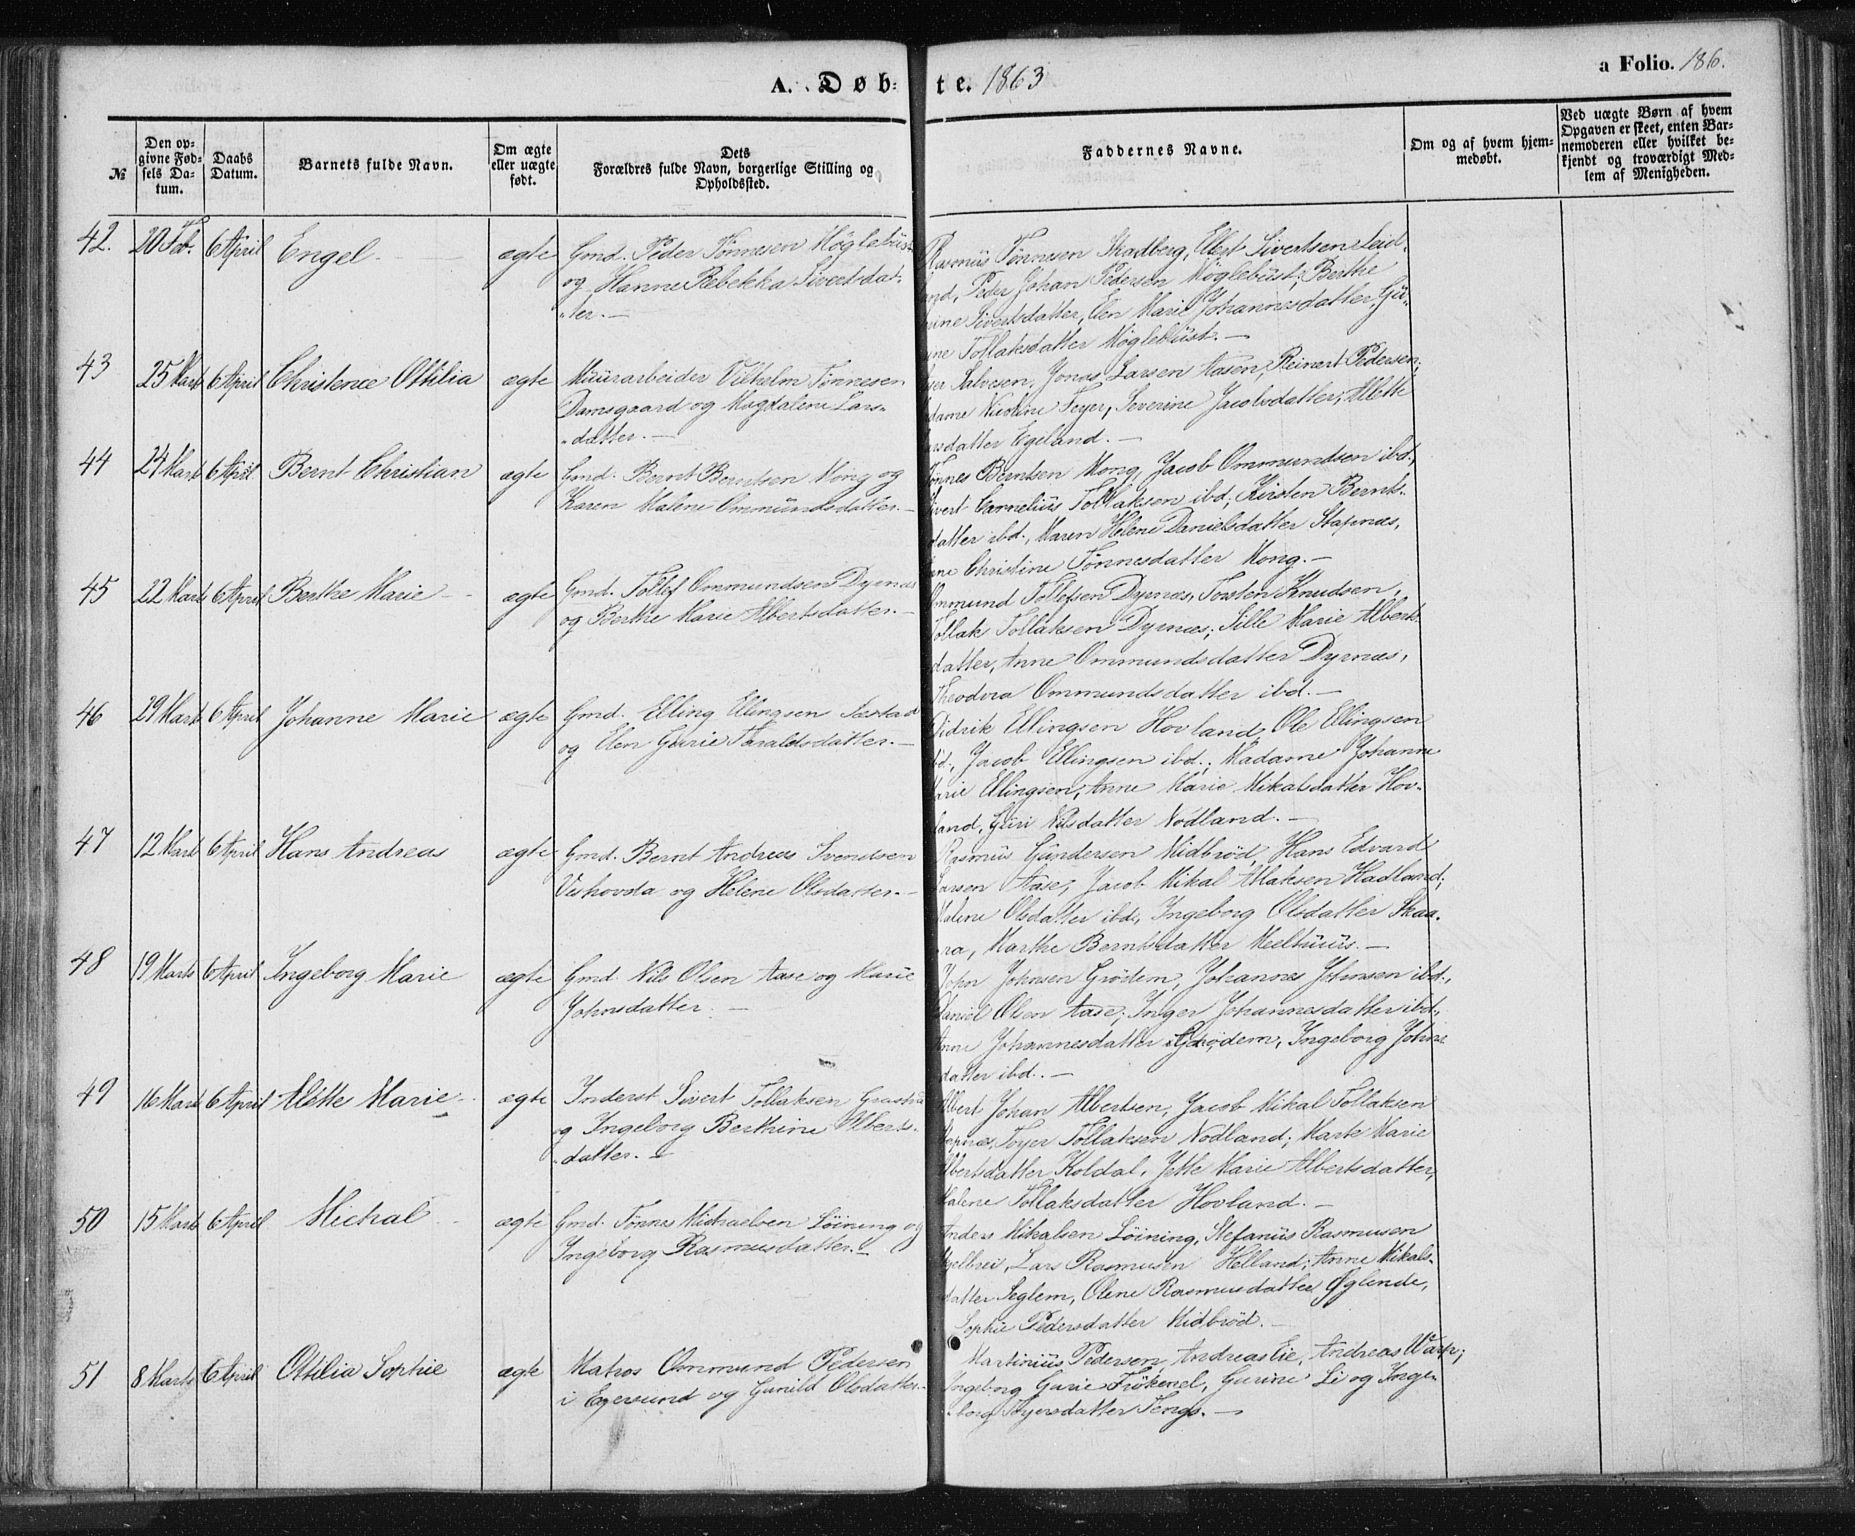 A. Døbte. 1863
a Folio. 186.
№
Den opgivne Fødsels Datum.
Daabs Datum.
Barnets fulde Navn.
Om ægte eller uægte født.
Dets Forældres fulde Navn, borgerlige Stilling og Opholdssted.
Faddernes Navne.
Om og af hvem hjemmedøbt.
Ved uægte Børn af hvem Opgaven er skeet, enten Barnemoderen eller hvilket bekjendt og troværdigt Medlem af Menigheden.
42. 20 Feb. 6 April Engel ægte Gmd. Peder Tønnesen Møglebüst
og Hanne Rebekka Sivertsdat-
"ter. —
Rasmüs Tønnesen Skadberg, Ellert Sivertsen Leid-
land, Peder Johan Pedersen Møglebüst; Berthe
Sivertsdatter, Elen Marie Johannesdatter, Gü-
Tollaksdatter Møglebüst. —
43 25 Marts 6 April Christence Ottilia ægte Müürarbeider Vilhelm Tønnesen
Damsgaard og Magdalene Lars-
"datter. —
Salvesen, Jonas Larsen Aasen, Reinert Pedersen;
Madame Nicoline Feyer, Severine Jacobsdatter, Alette
Larsdatter Egeland. —
44 24 Marts 6 April Bernt Christian ægte Gmd. Bernt Berntsen Mong og
Karen Malene Ommündsdatter. —
Tønnes Berntsen Mong, Jacob Ommundsen ibd.,
Sivert Cornelius Tollaksen ibd; Kirsten Bernts-
datter ibd., Maren Helene Danielsdatter Stapnæs,
Christine Tønnesdatter Mong. —
45 22 Marts 6 April Berthe Marie ægte Gmd. Tollef Ommundsen Dyrnæs
og Berthe Marie Albertsdatter. —
Ommund Tollefsen Dyrnæs, Torsten Knudsen,
Tollak Tollaksen Dyrnæs; Sille Marie Alberts-
datter, Anne Ommundsdatter Dyrnæs,
Theodora Ommundsdatter ibd. —
46 29 Marts 6 April Johanne Marie ægte Gmd. Elling Ellingsen Sæstad
og Elen Gurie Taraldsdatter. —
Didrik Ellingsen Hovland, Ole Ellingsen
ibd., Jacob Ellingsen ibd.; Madame Johanne
Marie Ellingsen, Anne Marie Mikalsdatter Hov-
land, Güri Nilsdatter Nodland. —
47 12 Marts 6 April Hans Andreas ægte Gmd. Bernt Andreas Svendsen
Vishovda og Helene Olsdatter. —
Rasmüs Gündersen Midbrød, Hans Edvard
Larsen Aase, Jacob Mikal Atlaksen Hadland;
Malene Olsdatter ibd., Ingeborg Olsdatter Skaa-
ra, Marthe Berntsdatter Meelhuus. —
48 19 Marts 6 April Ingeborg Marie ægte Gmd. Nils Olsen Aase og Marie
Johnsdatter. —
John Johnsen Grødem, Johannes Johnsen ibd.,
Daniel Olsen Aase; Inger Johannesdatter ibd.,
Anne Johannesdatter Grødem, Ingeborg Johns-
datter ibd. —
49 16 Marts 6 April Alette Marie ægte Inderst Sivert Tollaksen
og Ingeborg Berthine Alberts-
"datter. —
Albert Johan Albertsen, Jacob Mikal Tollaksen
Stapnæs, Toyer Tollaksen Nodland; Marte Marie
Albertsdatter Koldal, Jette Marie Albertsdatter,
Malene Tollaksdatter Hovland. —
50 15 Marts 6 April Michal ægte Gmd. Tønnes Michaelsen Løining og
Ingeborg Rasmusdatter. —
Anders Mikalsen Løining, Stefanüs Rasmusen
Mjelbrei, Lars Rasmusen Helland; Anne Mikals-
datter Seglem, Olene Rasmusdatter Øglende,
Sophie Pedersdatter Midbrød. —
51 8 Marts 6 April Ottilia Sophie ægte Matros Ommund Pedersen
i Egersund og Gunild Olsdatter. —
Martiniüs Pedersen, Andreas Eie, Andreas Warp;
Ingeborg Gurie Frøkenel, Gurine Li og Inge-
borg Toyersdatter Tengs. —